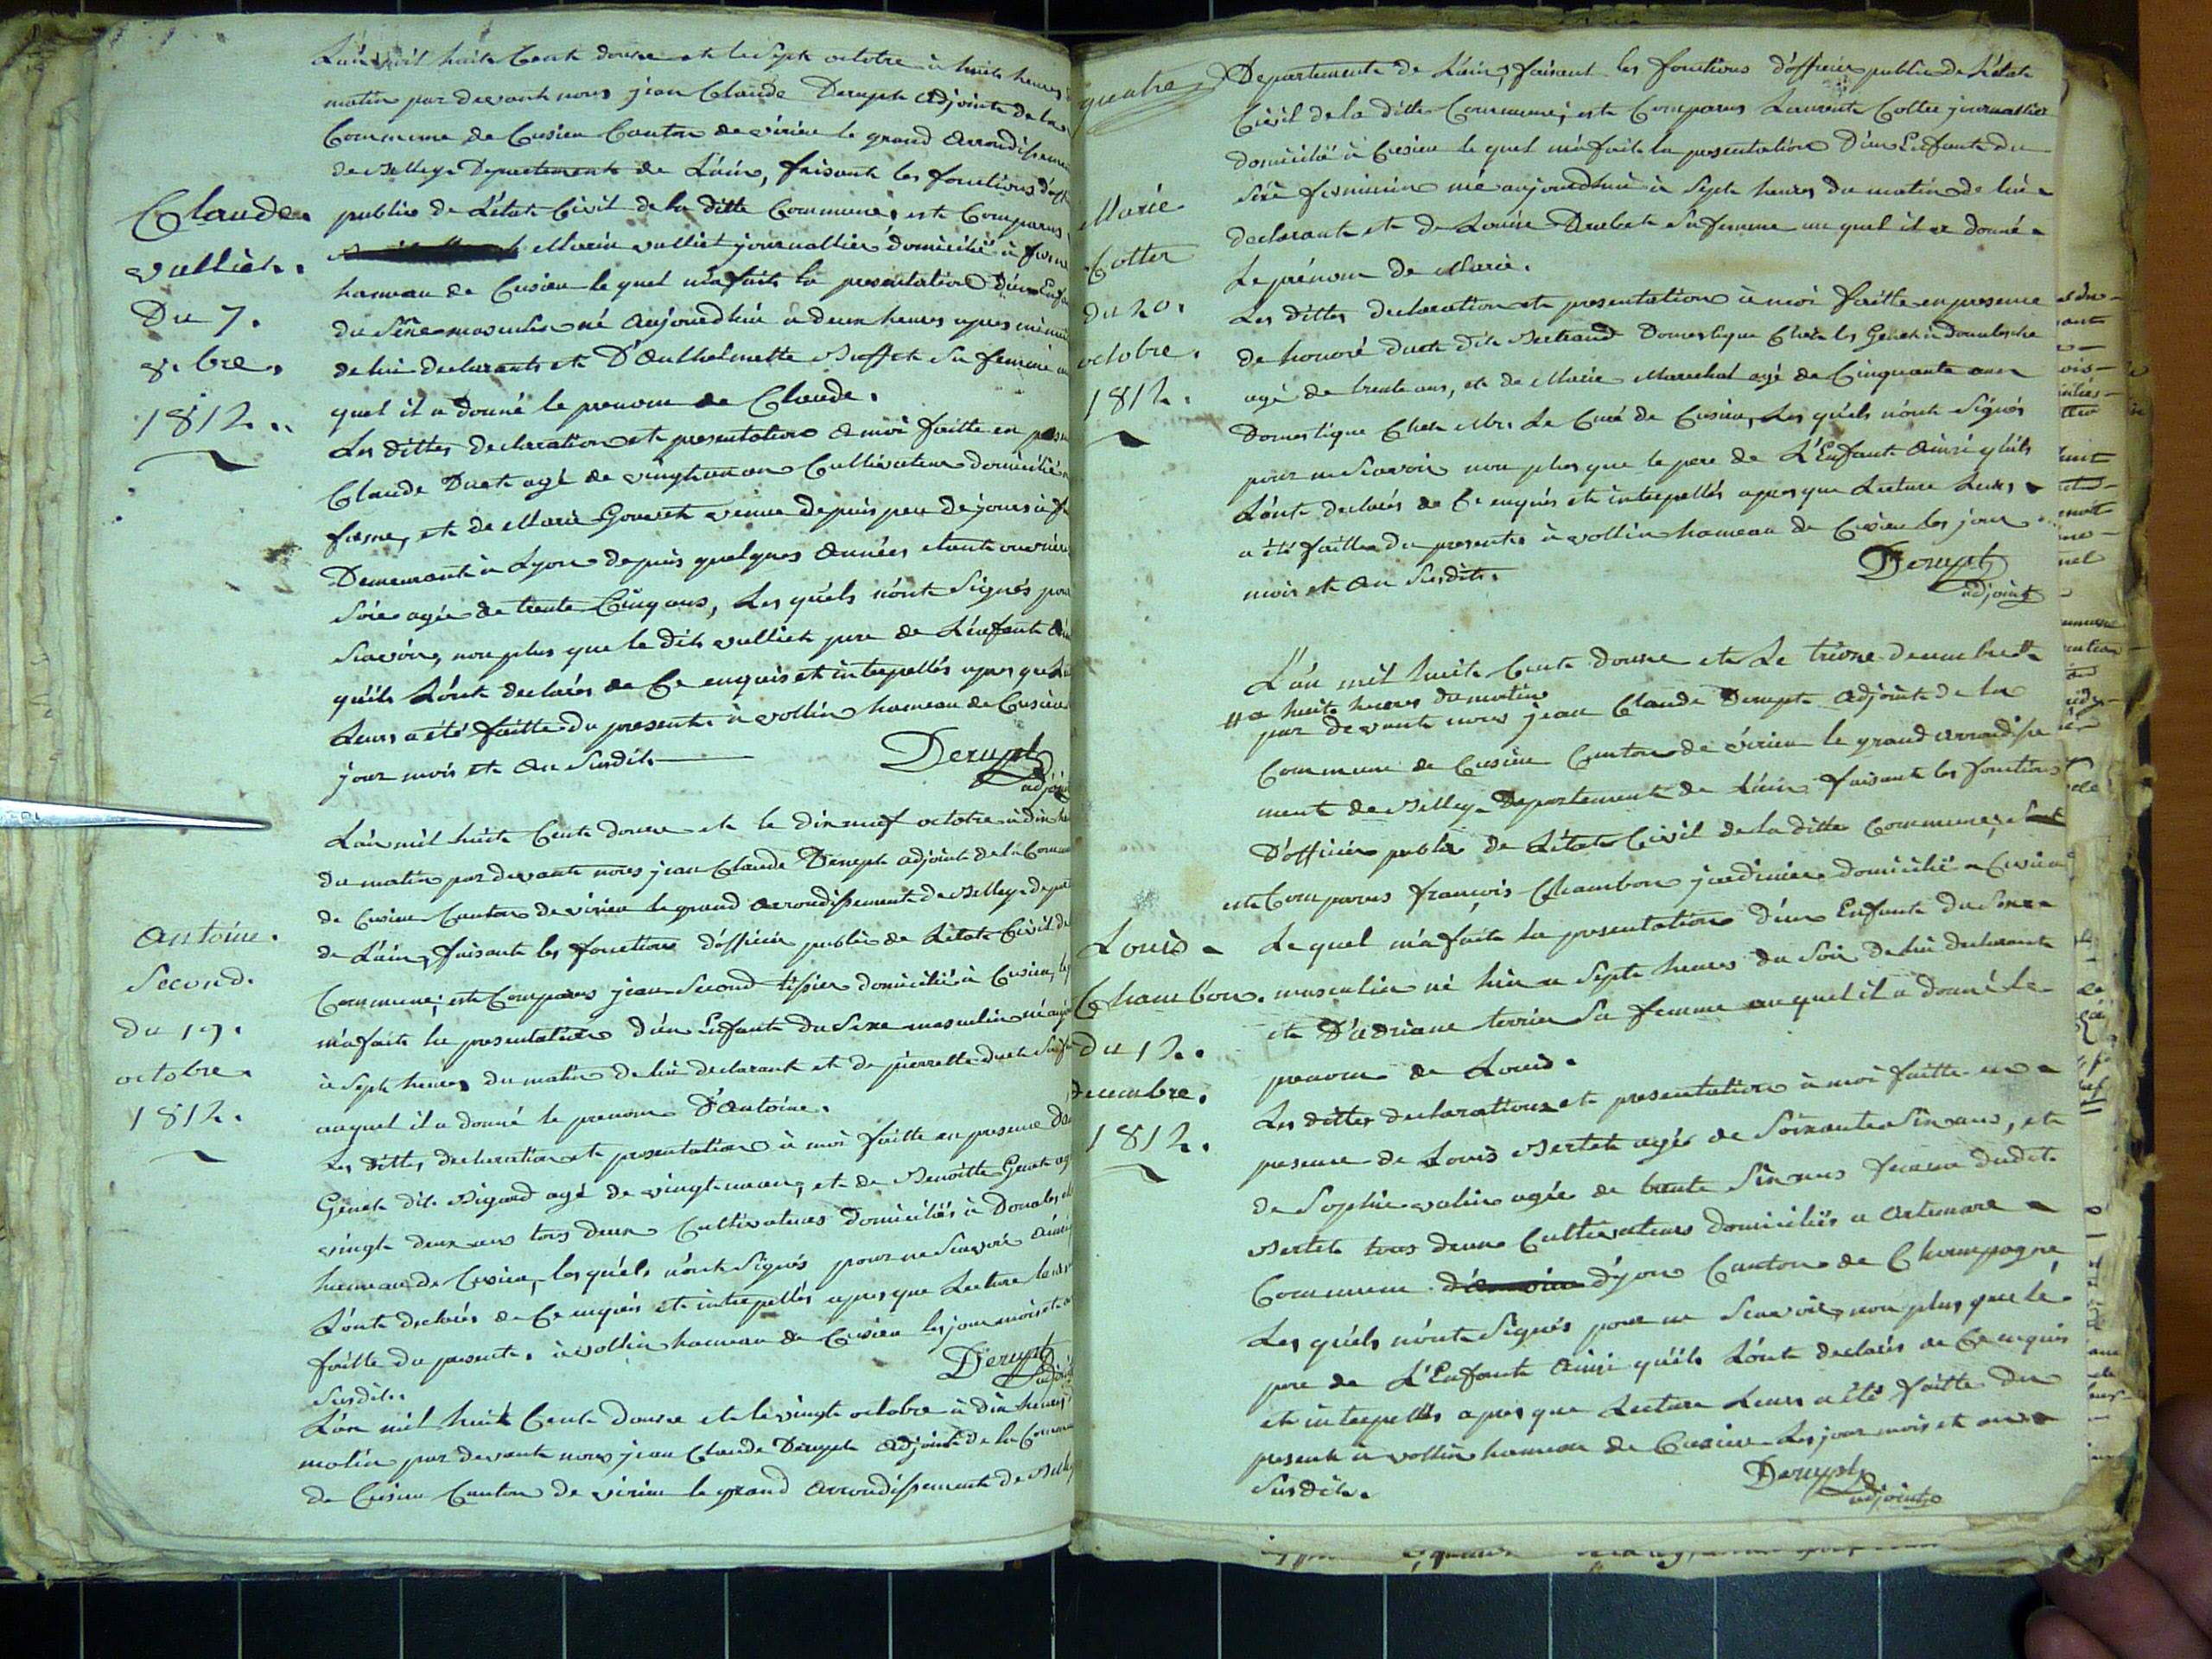 L'an mil huit Cent douze et le Sept octobre à huit heures
matin par devant nous jean Claude Derupt adjoint de la
Commune de Cusieu Canton de virieu le grand arrondisseme
de Belley Departement de L'ain, faisant les fonctions d'off
public de L'état Civil de la ditte Commune, est Comparus
Marin vulliet journallier domicilié à
hameau de Cusieu le quel m'a fait la presentation D'un Enfa
du Sêxe masculin né aujourdhui à deux heures apres minui
de lui declarant et D'Anthelmette Buffet Sa femme au
quel il a donné le prenom de Claude.
Les dittes declaration et presentation à moi faitte en prese
Claude Duet agé de vingt un an Cultivateur domicilié
et de Marie Gouvet venue depuis peu de jours à
Demeurant à Lyon depuis quelques années etant ouvrière
Soie agée de trente Cinq ans, Les qu'els n'ont Signés pour
Scavoir, non plus que le dit vulliet pere de L'enfant
qu'ils L'ont declarés de Ce enquis et interpellés apres que
Leurs a été faitte du present à vollin hameau de Cusieu
jour mois et an Susdit.
Derupt
adjoin
Claude
vulliet.
Du 7.
8.bre.
1812..
L'an mil huit Cent douze et le dix neuf octobre à dix he
du matin par devant nous jean Claude Derupt adjoint de la Comm
de Cusieu Canton de virieu le grand arrondissement de Belley depar
de L'ain, faisant les fonctions d'officier public de L'état Civil de
Commune; est Comparus jean Second tissier domicilié à Cusieu,
m'a fait la presentation d'un Enfant du Sexe masculin né
à Sept heures du matin de lui declarant et de pierrette duet Sa
auquel il a donné le prenom D'antoine.
Les dittes declaration et presentation à moi faitte en presence
Genet dit Bigard agé de vingt et de Benoitte Genet ag
vingt deux ans tous deux Cultivateurs domiciliés à
hameau de Cusieu, les qu'els n'ont Signés pour ne Scavoir ainsi
L'ont declarés de Ce enquis et interpellés apres que Lecture leurs
faitte du present. à vollin hameau de Cusieu les jour mois et
Susdit.
Derupt
adjoi
Antoine.
Second.
du 19.
octobre.
1812.
L'an mil huit Cent douze et le vingt octobre à dix heures
matin par devant nous jean Claude Derupt adjoint de la Commu
de Cusieu Canton de virieu le grand arrondissement de Belley
quatre
Departement de L'ain, faisant les fonctions d'officier public de L'état
Civil de la ditte Commune; est Comparus Laurent Cotter journallier
domicilié à Cusieu le quel m'a fait la presentation D'un Enfant du
Sêxe feminin né aujourdhui à Sept heures du matin de lui
declarant et de Louise Sa femme au quel il a donné
Le prénom de Marie.
Les dittes declaration et presentation à moi faitte en presence
de honoré duet dit Bertrand Domestique Chez les Genet à
agé de trente ans, et de Marie Marechal agé de Cinquante ans
Domestique Chez Mr. Le Curé de Cusieu, Les qu'els n'ont Signés
pour ne Scavoir non plus que le pere de L'Enfant ainsi qu'ils
L'ont declarés de Ce enquis et interpellés apres que Lecture Leurs
a été faitte du present à vollin hameau de Cusieu les jour
mois et an Susdit.
Derupt
adjoint
Marie
Cotter
du 20.
octobre.
1812.
L'an mil huit Cent douze et Le treize decembre
// a huit heures du matin
par devant nous jean Claude Derupt adjoint de la
Commune de Cusieu Canton de virieu le grand arrondisse
ment de Belley Departement de L'ain faisant les fonctions
D'officier public de L'état Civil de la ditte Commune;
est Comparus françois Chambon jardinier domicilié a Cusieu
Le quel m'a fait la presentation d'un Enfant du Sexe
masculin né hier a Sept heures du Soir de lui declarant
et D'adriane terrier Sa femme auquel il a donné le
prenom de Louis.
Les dittes declaration et presentation à moi faitte en
presence de Louis Bertet agés de Soixante Six ans, et
de Sophie valin agée de trente Six ans femme dudit
Bertet tous deux Cultivateurs domiciliés a Artemare
Commune d'yon Canton de Champagne,
Les qu'els n'ont Signés pour ne Scavoir, non plus que le
pere de L'Enfant ainsi qu'ils L'ont declarés de Ce enquis
et interpellés apres que Lecture Leurs a été faitte du
present à vollin hameau de Cusieu Les jour mois et an
Susdit.
Derupt
adjoint
Louis
Chambon.
du 12.
decembre.
1812.